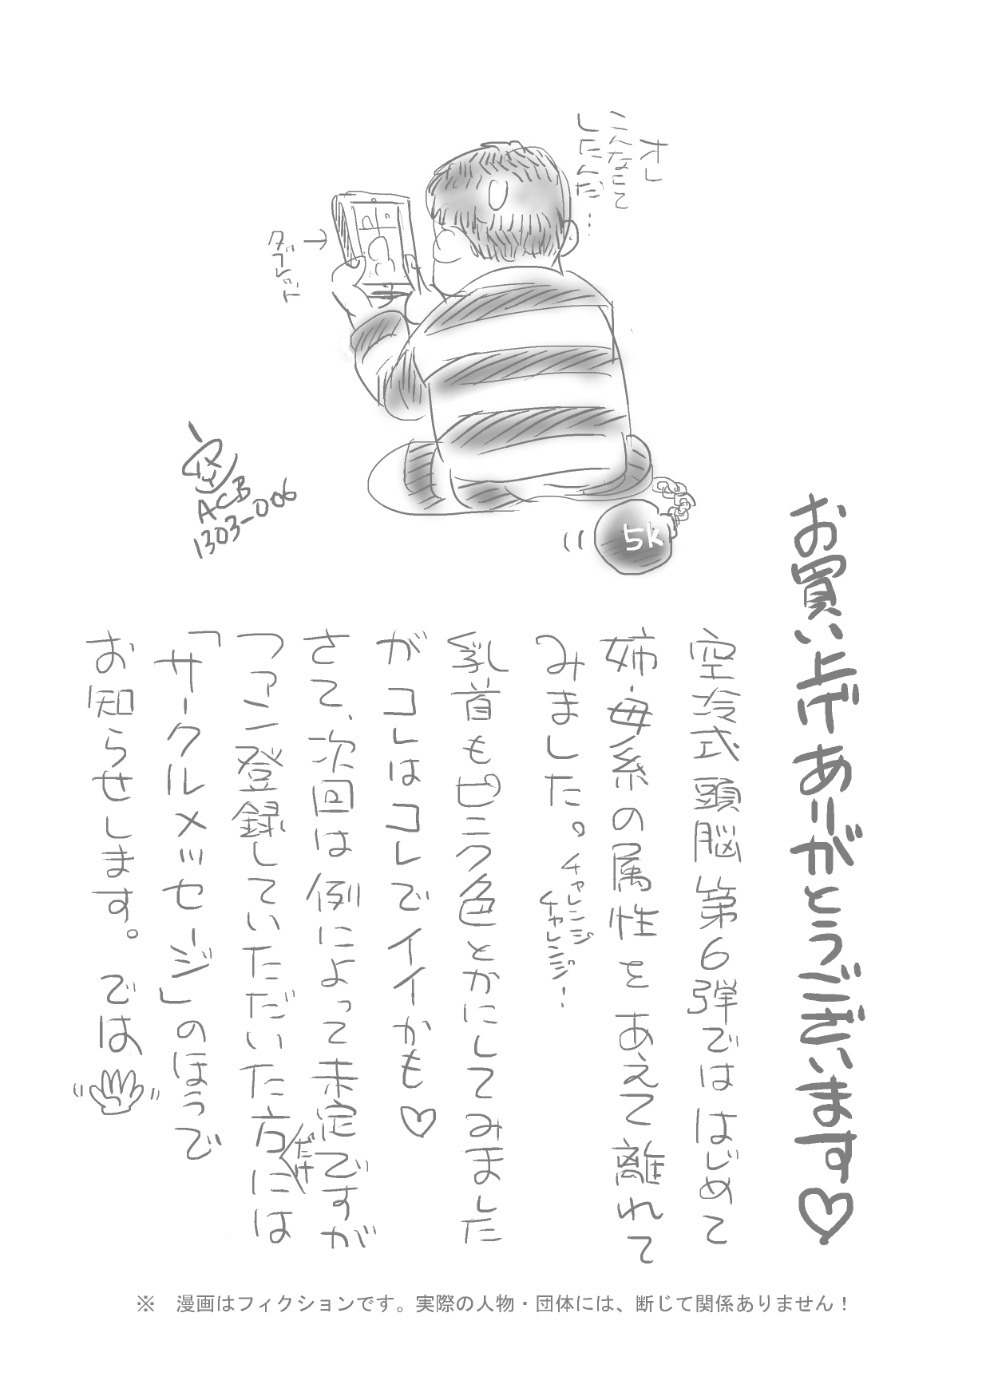 オレ
こんなにて
したんだ…
タブレット
→
空
ACB
1303-006
5k
お買い上げありがとうございます♡
空冷式頭脳第6弾では はじめて
姉・母系の属性を あえて離れて
みました。チャレンジ
チャレンジ!
乳首もピンク色とかにしてみました
がコレはコレでイイかも♡
さて、次回は例によって未定ですが
ファン登録していただいた方だけには
「サークルメッセージ」のほうで
お知らせします。では
※ 漫画はフィクションです。実際の人物・団体には、断じて関係ありません!